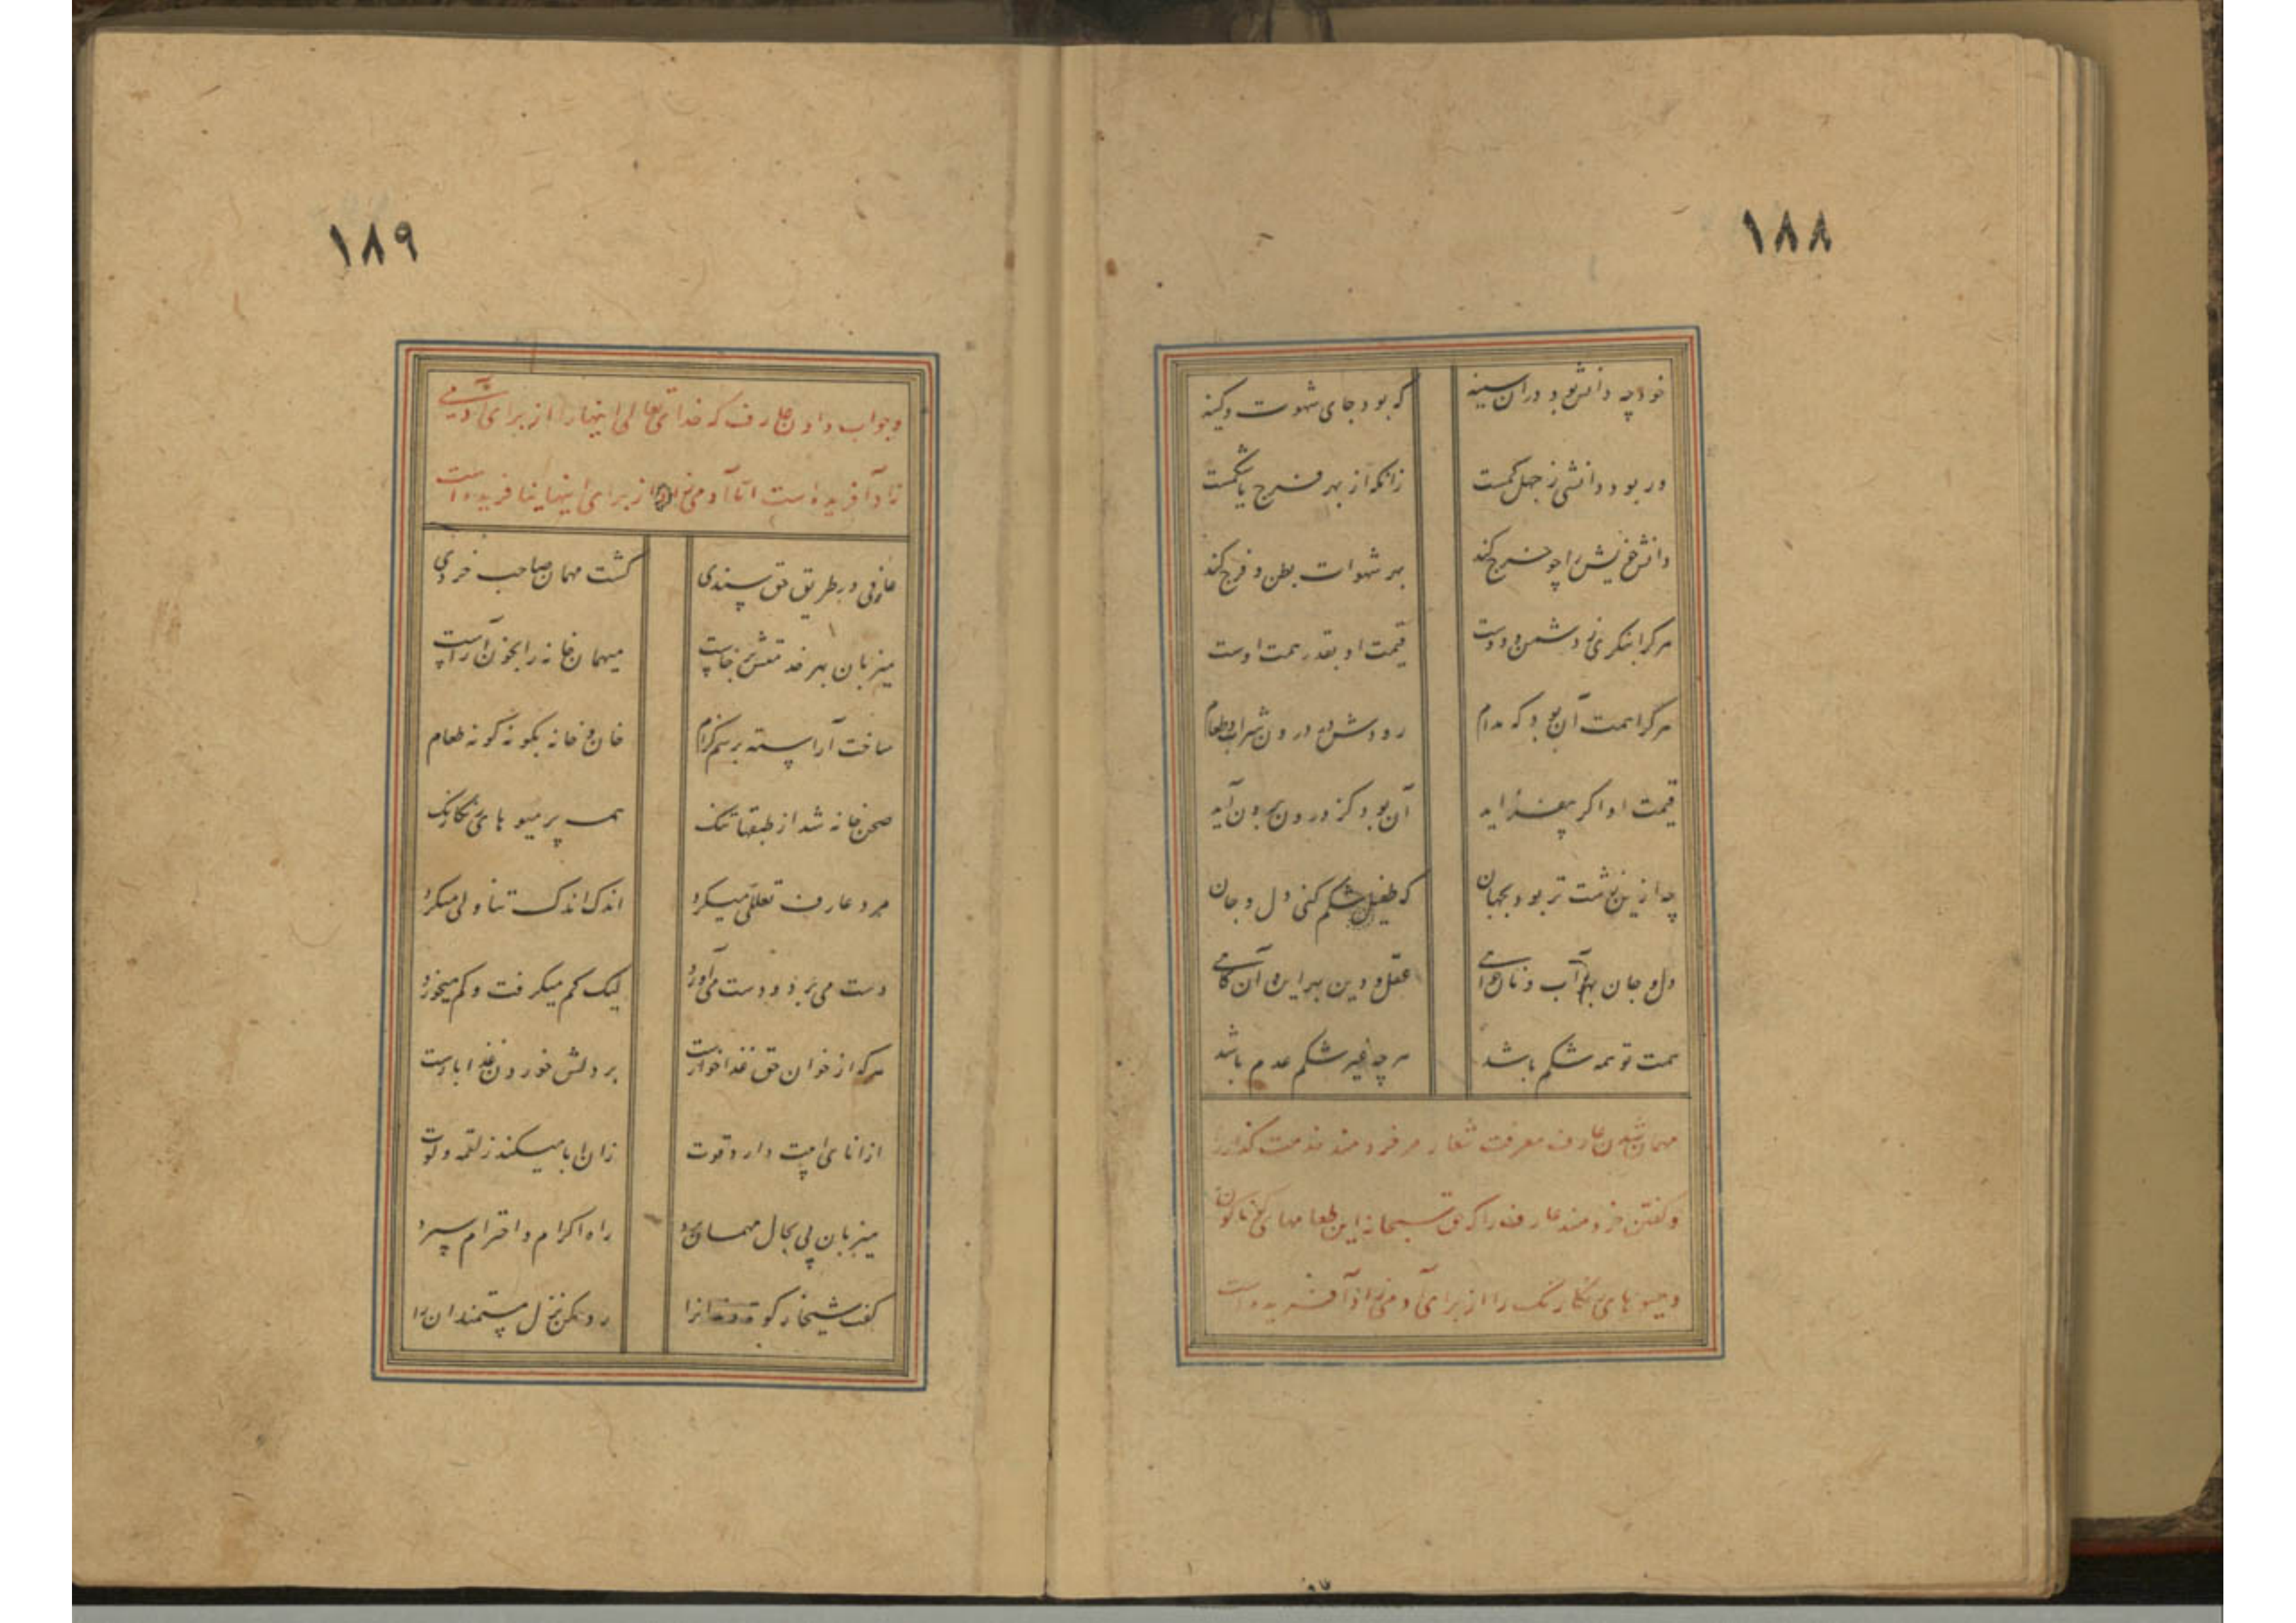 ١٨٨
خود چه دانش بود در آن سینه
که بود جای شهوت و کینه
ور بود دانشی ز جهل کمست
زانکه از بهر فرج یا شکمست
دانش خویش را چو خرج کند
بهر شهوات بطن و فرج کند
هر کرا بنگری ز دشمن و دوست
قیمت او بقدر همت اوست
هر کرا همت آن بود که مدام
رودش در درون شراب و طعام
قیمت او اگر بیفزاید
آن بود کز درون برون آید
چه ازین زشت تر بود بجهان
که طفیل شکم کنی دل و جان
دل و جان بهر آب و نان خواهی
عقل و دین بهر این و آن کاهی
همت تو همه شکم باشد
هر چه غیر شکم عدم باشد
مهمان شدن عارف معرفت شعار مر خردمند خدمت گذار را
و گفتن خردمند عارف را که حق سبحانه این طعامهای گوناگون
و میوهای رنگارنگ را از برای آدمی زاد آفریده است
١٨٩
و جواب دادن عارف که خدای تعالی اینها را از برای آدمی
زاد آفریده است اما آدمی زاد را از برای اینها نیافریده است
عارفی در طریق حق سندی
گشت مهمان صاحب خردی
میزبان بهر خدمتش برخاست
میهمان خانه را بخوان آراست
ساخت آراسته برسم کرام
خان و خانه بگونه گونه طعام
صحن خانه شد از طبقها تنگ
همه پر میوهای رنگارنگ
مرد عارف تعللی میکرد
اندک اندک تناولی میکرد
دست می برد و دست می آورد
لیک کم میگرفت و کم میخورد
هر که از خوان حق غذا خوارست
بر دلش خوردن غذا بارست
از انای ابیت دارد قوت
زان ابا میکند ز لقمه و لوت
میزبان پی بحال مهمان برد
راه اکرام و احترام سپرد
گفت شیخا
رد مکن نزل مستمندان را